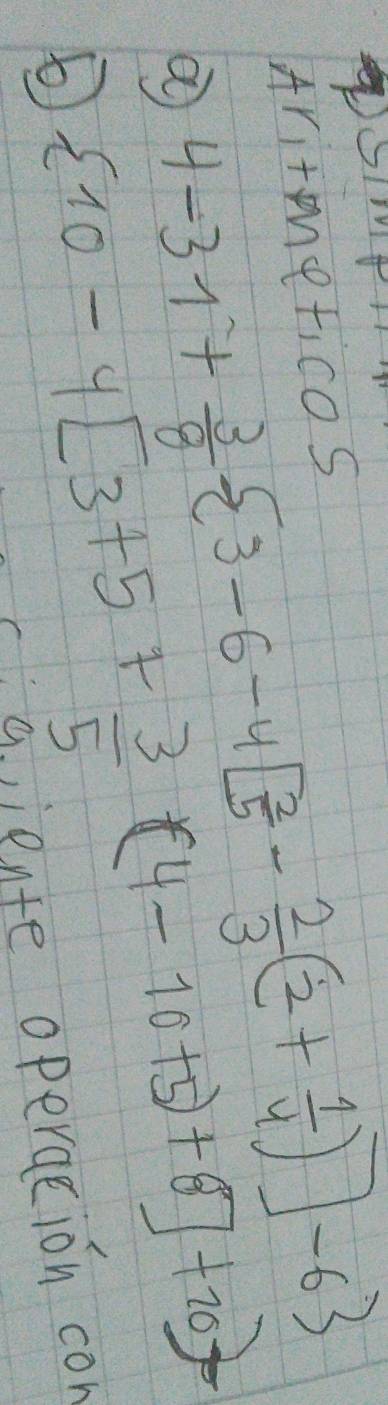 Aritmeticos
a) 4-31+3/8{3-6-4[2/5-2/3(2+1/4)]-6}
b) {10-4[3+5+3/5(4-10+5)+8]+10}
operación con